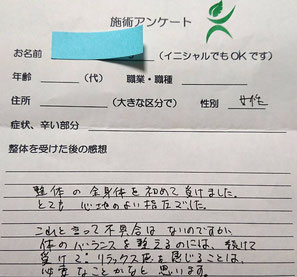 施術アンケート
お名前 (イニシャルでもOKです)
年齢 (代) 職業・職種
住所 (大きな区分で) 性別 女性
症状、辛い部分
整体を受けた後の感想
整体の全身体を初めて受けました。
とても心地のよい指圧でした。
これと言って不具合はないのですが、
体のバランスを整えるのには、続けて
受けて、リラックス感を感じることは、
必要なことかなと思います。